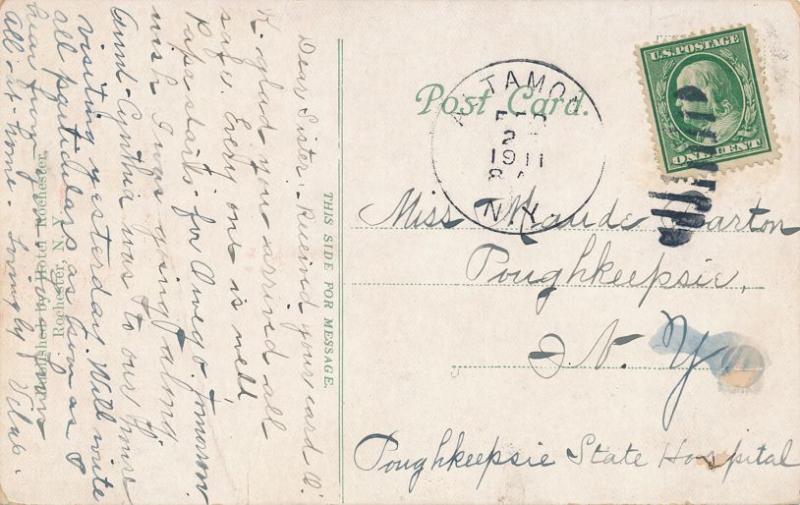 Post Card.
U.S. POSTAGE
ONE CENT
ALTAMONT
FEB
2
1911
8 A
N.Y.
THIS SIDE FOR MESSAGE.
Published by Hotel Rochester,
Rochester, N. Y.
Dear Sister: Rec'ind your card O.
K. glad you arrived all
safe. Every one is well
Papa starts for Owego tomorrow.
wish I was going along
Aunt Cynthia was to our house
visiting yesterday. Will write
all particulars as soon as I
hear from
All at home. Lovingly
Miss Maude Barton
Poughkeepsie,
N. Y.
Poughkeepsie State Hospital